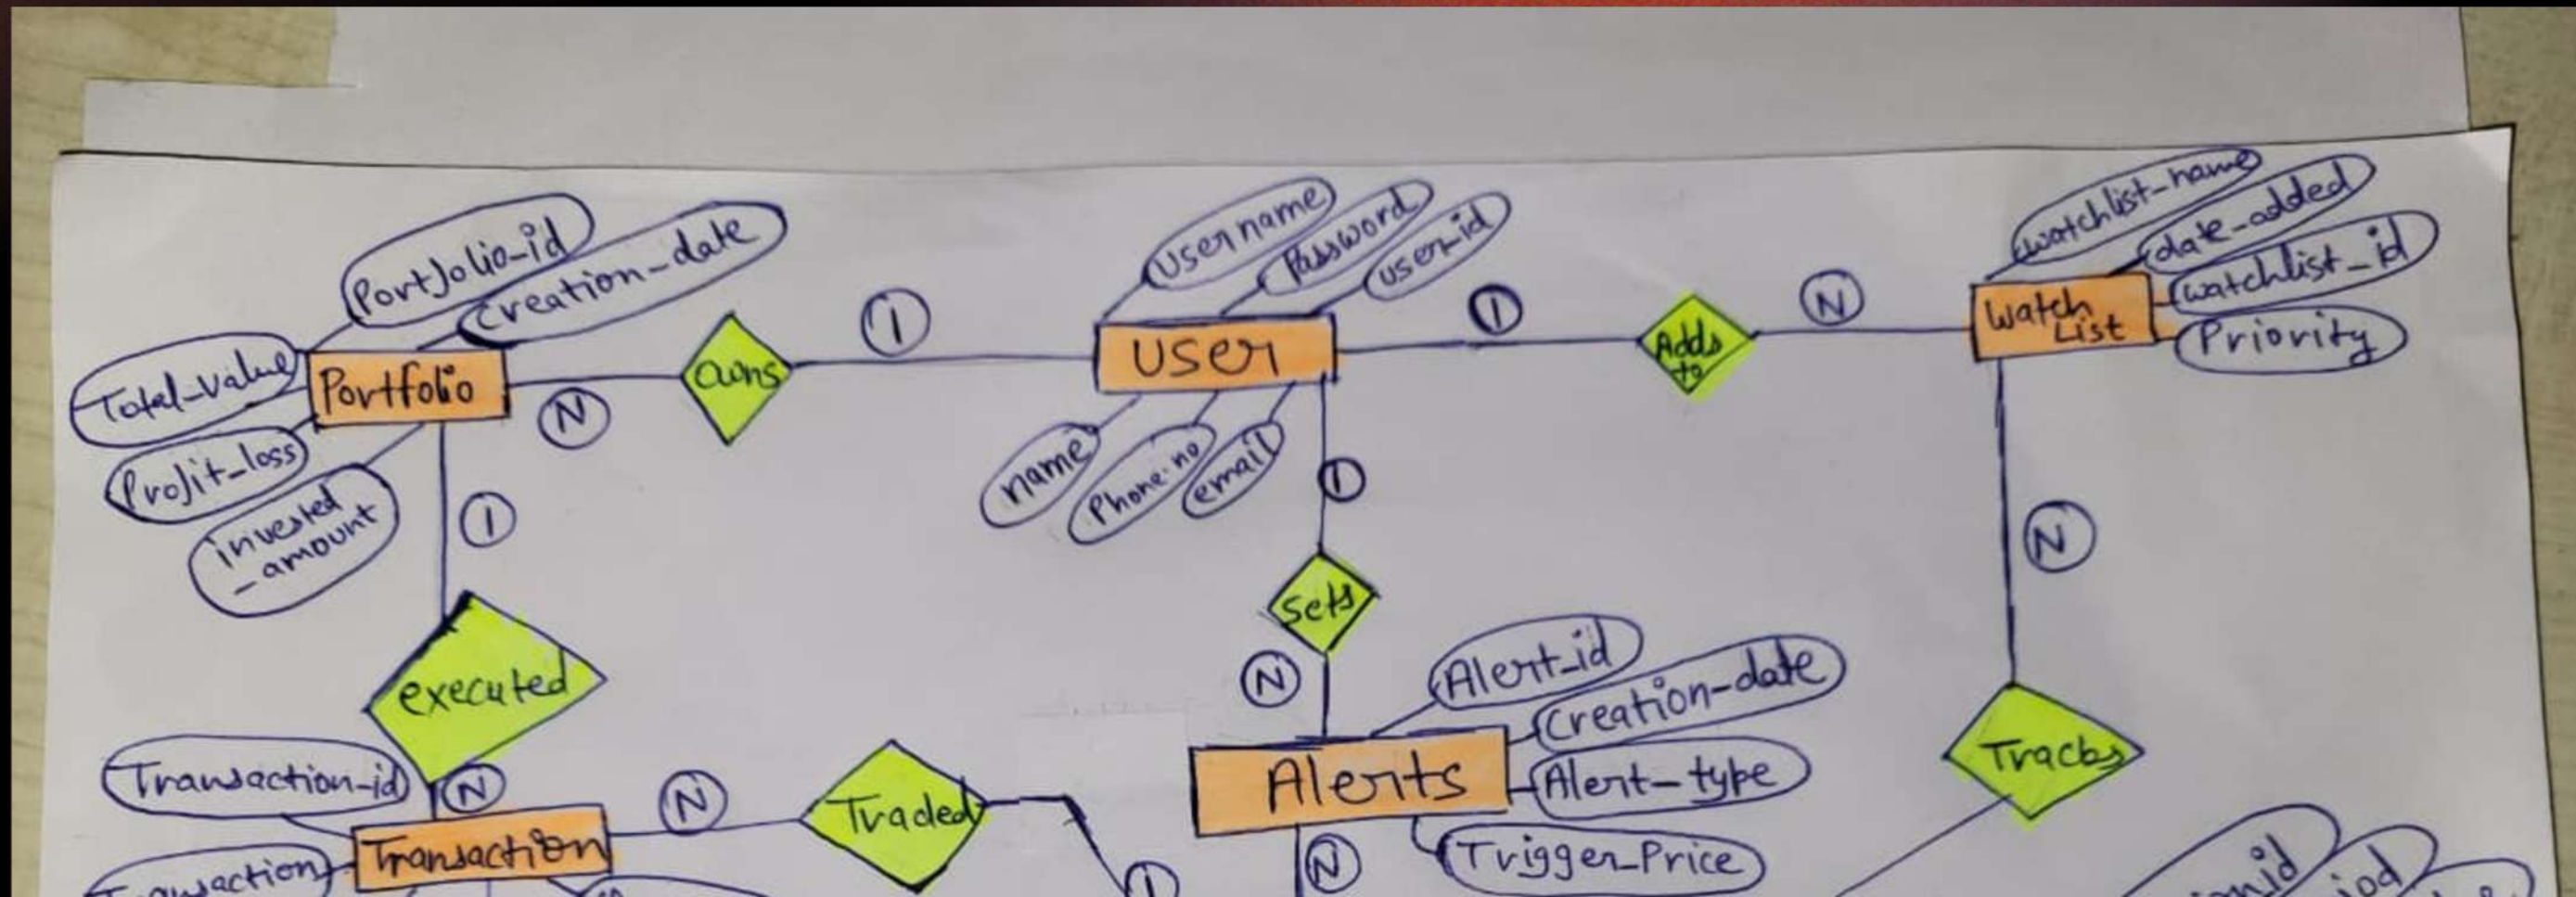 Portfolio_id
Creation_date
Total_Value
Portfolio
Profit_loss
invested
_amount
N
Owns
1
Username
Password
user_id
User
name
Phone.no
email
1
Adds
to
N
watchlist_name
date_added
watchlist_id
Priority
Watch
List
1
executed
N
1
Sets
N
Alert_id
Creation_date
Alert_type
Trigger_Price
Alerts
N
N
Tracks
Transaction_id
Transaction
N
Traded
1